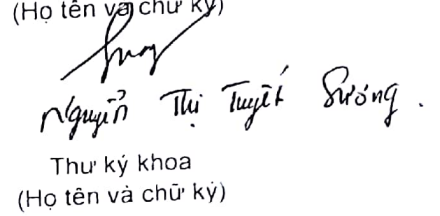 (Họ tên và chữ ký)
Nguyễn Thị Tuyết Sương.
Thư ký khoa
(Họ tên và chữ ký)